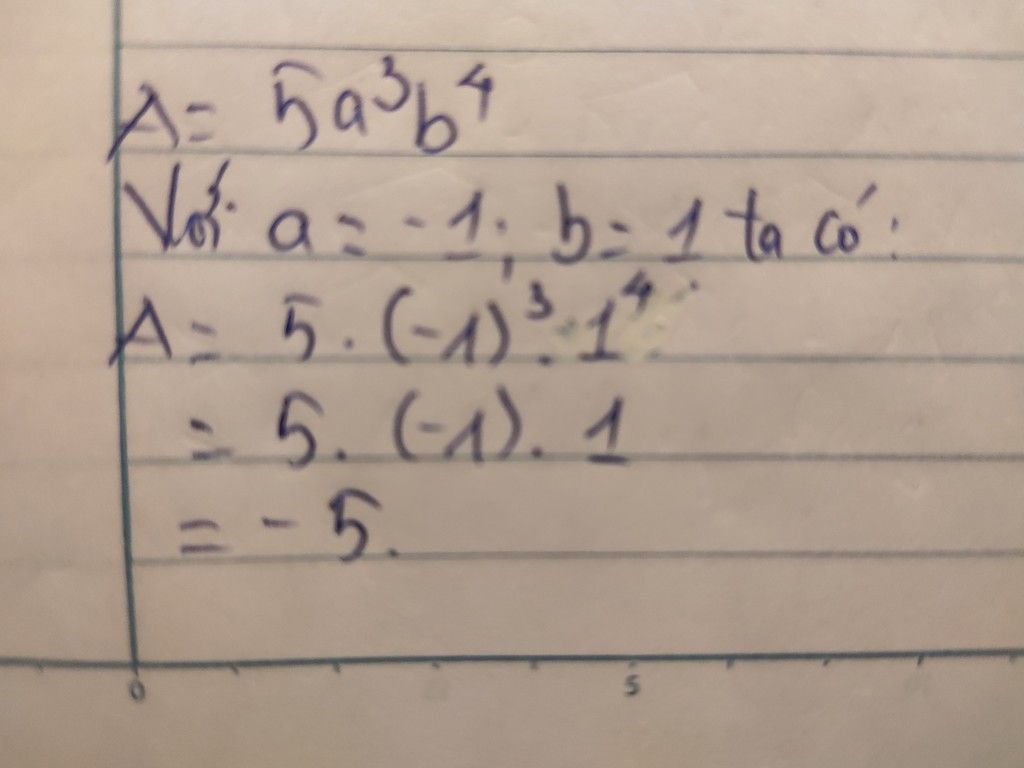 A = 5a³b⁴
Với a = -1; b = 1 ta có:
A = 5 . (-1)³ . 1⁴
= 5 . (-1) . 1
= - 5.
0 5